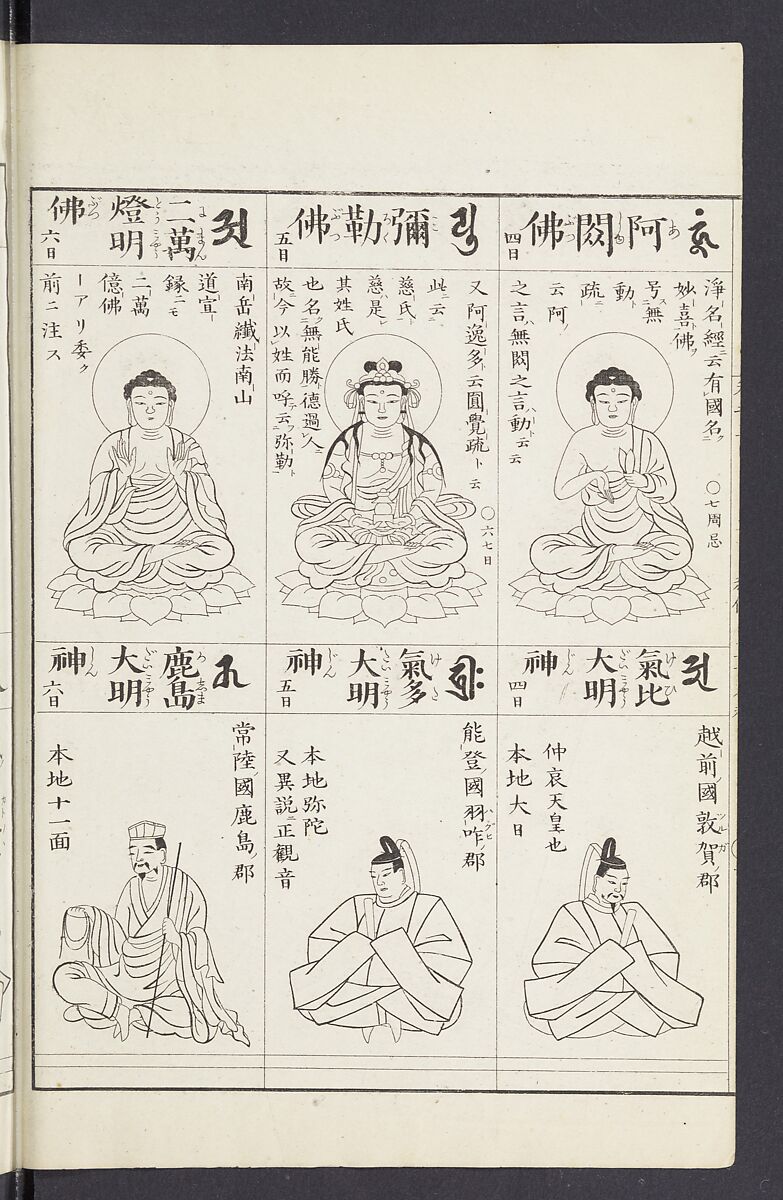 阿閦佛
四日
淨名經ニ云有國名ク
妙喜佛ヲ
号ス無
動ト
疏ニ
云阿ノ
之言ハ無閦之言ハ動ト云云
〇七周忌
彌勒佛
五日
又阿逸多ト云圓覺疏ト云
此ニ云ニ
慈氏ト
慈ハ是レ
其姓氏
也名ク無能勝ト德過人ニ
故ニ今以姓而呼テ云弥勒ト
〇六七日
二萬燈明佛
六日
南岳纖法南山
道宣ノ
録ニモ
二萬
億佛
ーアリ委ク
前ニ注ス
氣比大明神
四日
越前ノ國敦賀ノ郡
ツルガ
仲哀天皇也
本地大日
氣多大明神
五日
能登國羽咋ノ郡
ハグヒ
本地弥陀
又異説ニ正觀音
鹿島大明神
六日
常陸國鹿島ノ郡
本地十一面